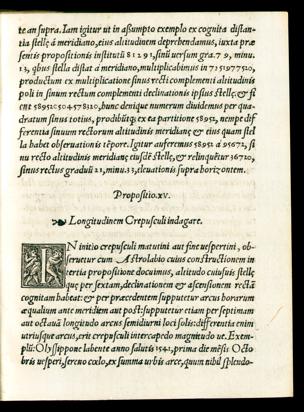 te an supra. Iam igitur ut in assumpto exemplo ex cognita distan-
tia stellę á meridiano, eius altitudinem deprehendamus, iuxta præ
sentis propositionis institutũ 81291, sinũ uersum gra. 79, minu.
13, quibus stella distat á meridiano, multiplicabimus in 7151977520,
productum ex multiplicatione sinus recti complementi altitudinis
poli in sinum rectum complementi declinationis ipsius stellę: & fi
ent 581450504578320, hunc denique numerum diuidemus per qua-
dratum sinus totius, prodibũtque ex ea partitione 58952, nempe dif
ferentia sinuum rectorum altitudinis meridianę & eius quam stel
la habet obseruationis tẽpore. Igitur auferemus 58952 á 95672, si
nu recto altitudinis meridianę eiusdẽ stellę, & relinquẽtur 36720,
sinus rectus graduũ 21, minu. 33, eleuationis supra horizontem.
Propositio. xv.
Longitudinem Crepusculi indagare.
IN initio crepusculi matutini aut fine uespertini, ob-
seruetur cum Astrolabio cuius constructionem in
tertia propositione docuimus, altitudo cuiusuis stellę
quę per sextam, declinationem & ascensionem rectã
cognitam habeat: & per præcedentem supputetur arcus horarum
æqualium ante meridiem aut post: supputetur etiam per septimam
aut octauã longitudo arcus semidiurni loci solis: differentia enim
utriusque arcus, erit crepusculi intercapedo magnitudo ue. Exem-
pli: Olyssippone labente anno salutis 1541, prima die mẽsis Octo
bris uesperi, sereno cœlo, ex summa urbis arce, quum nihil splendo-